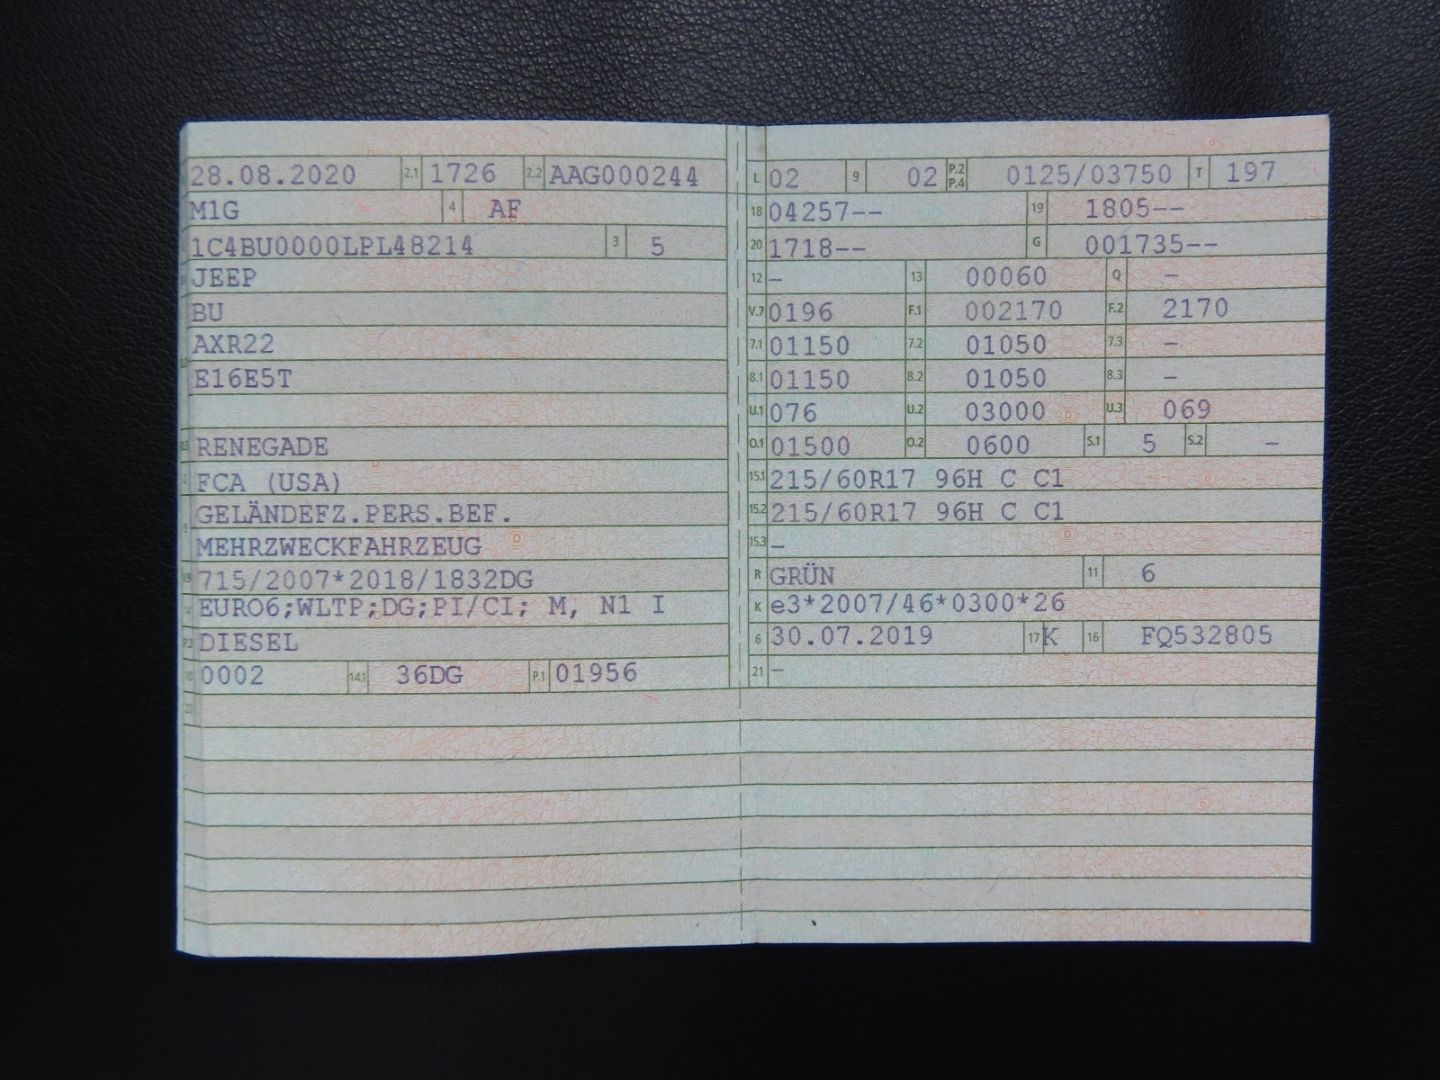 28.08.2020 2.1 1726 2.2 AAG000244
M1G 4 AF
1C4BU0000LPL48214 3 5
JEEP
BU
AXR22
E16E5T
RENEGADE
FCA (USA)
GELÄNDEFZ.PERS.BEF.
MEHRZWECKFAHRZEUG
715/2007*2018/1832DG
EURO6;WLTP;DG;PI/CI; M, N1 I
P.3 DIESEL
10 0002 14.1 36DG P.1 01956
22
L 02 9 02 P.2 P.4 0125/03750 T 197
18 04257-- 19 1805--
20 1718-- G 001735--
12 - 13 00060 Q -
V.7 0196 F.1 002170 F.2 2170
7.1 01150 7.2 01050 7.3 -
8.1 01150 8.2 01050 8.3 -
U.1 076 U.2 03000 U.3 069
O.1 01500 O.2 0600 S.1 5 S.2 -
15.1 215/60R17 96H C C1
15.2 215/60R17 96H C C1
15.3 -
R GRÜN 11 6
K e3*2007/46*0300*26
6 30.07.2019 17 K 16 FQ532805
21 -